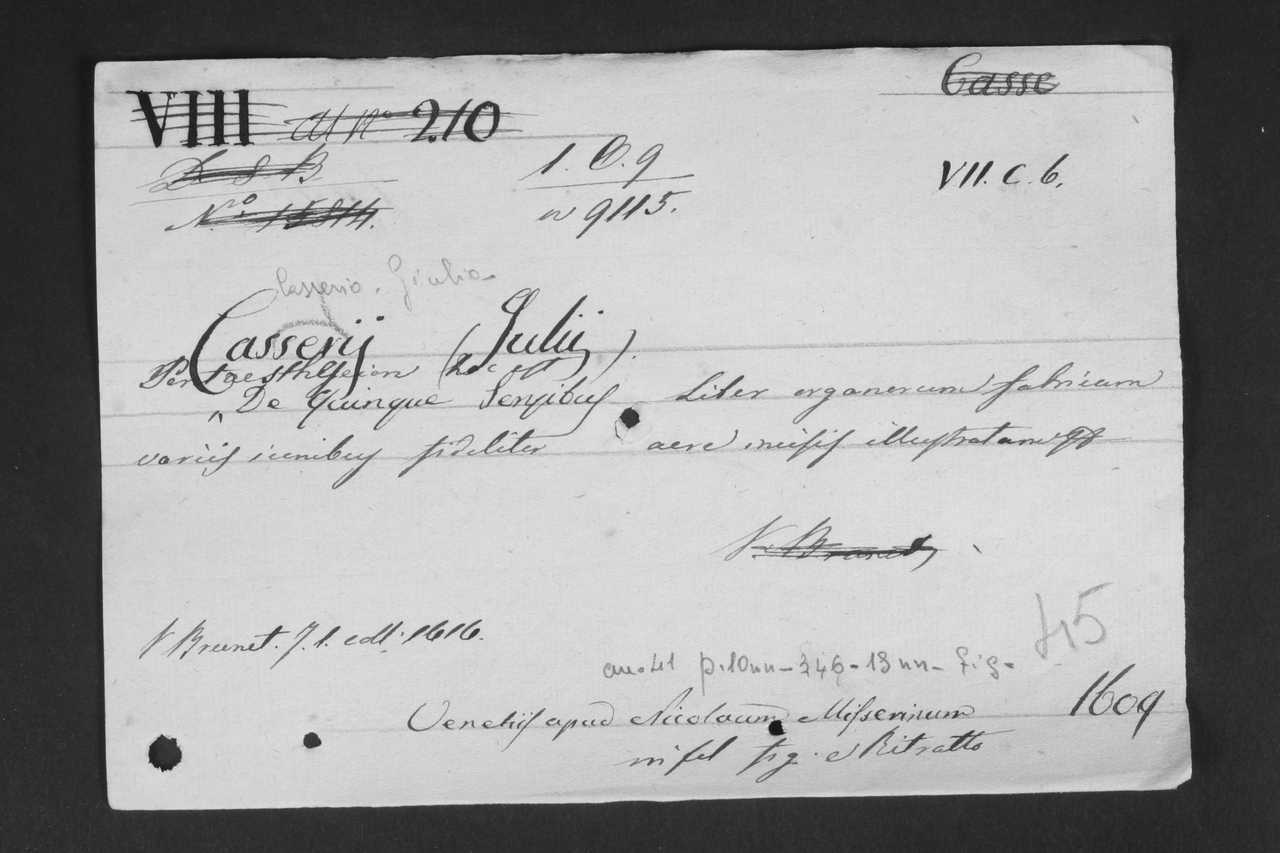 Casse
VIII al No 210
D S B 1. D. 9 VII. C. 6.
N.ro 15814. n 9115.
Casserio. Giulio
Casserij (Julij).
Pentaestheseion hoc est
De Quinque Sensibus Liber organorum fabricam
variis iconibus fideliter aere incisis illustratam
V. Brunet
V Brunet. J. 1. edit. 1616.
45
p. 10nn-346-13nn- fig.
Venetiis apud Nicolaum Misserinum 1609
in fol fig. e Ritratto